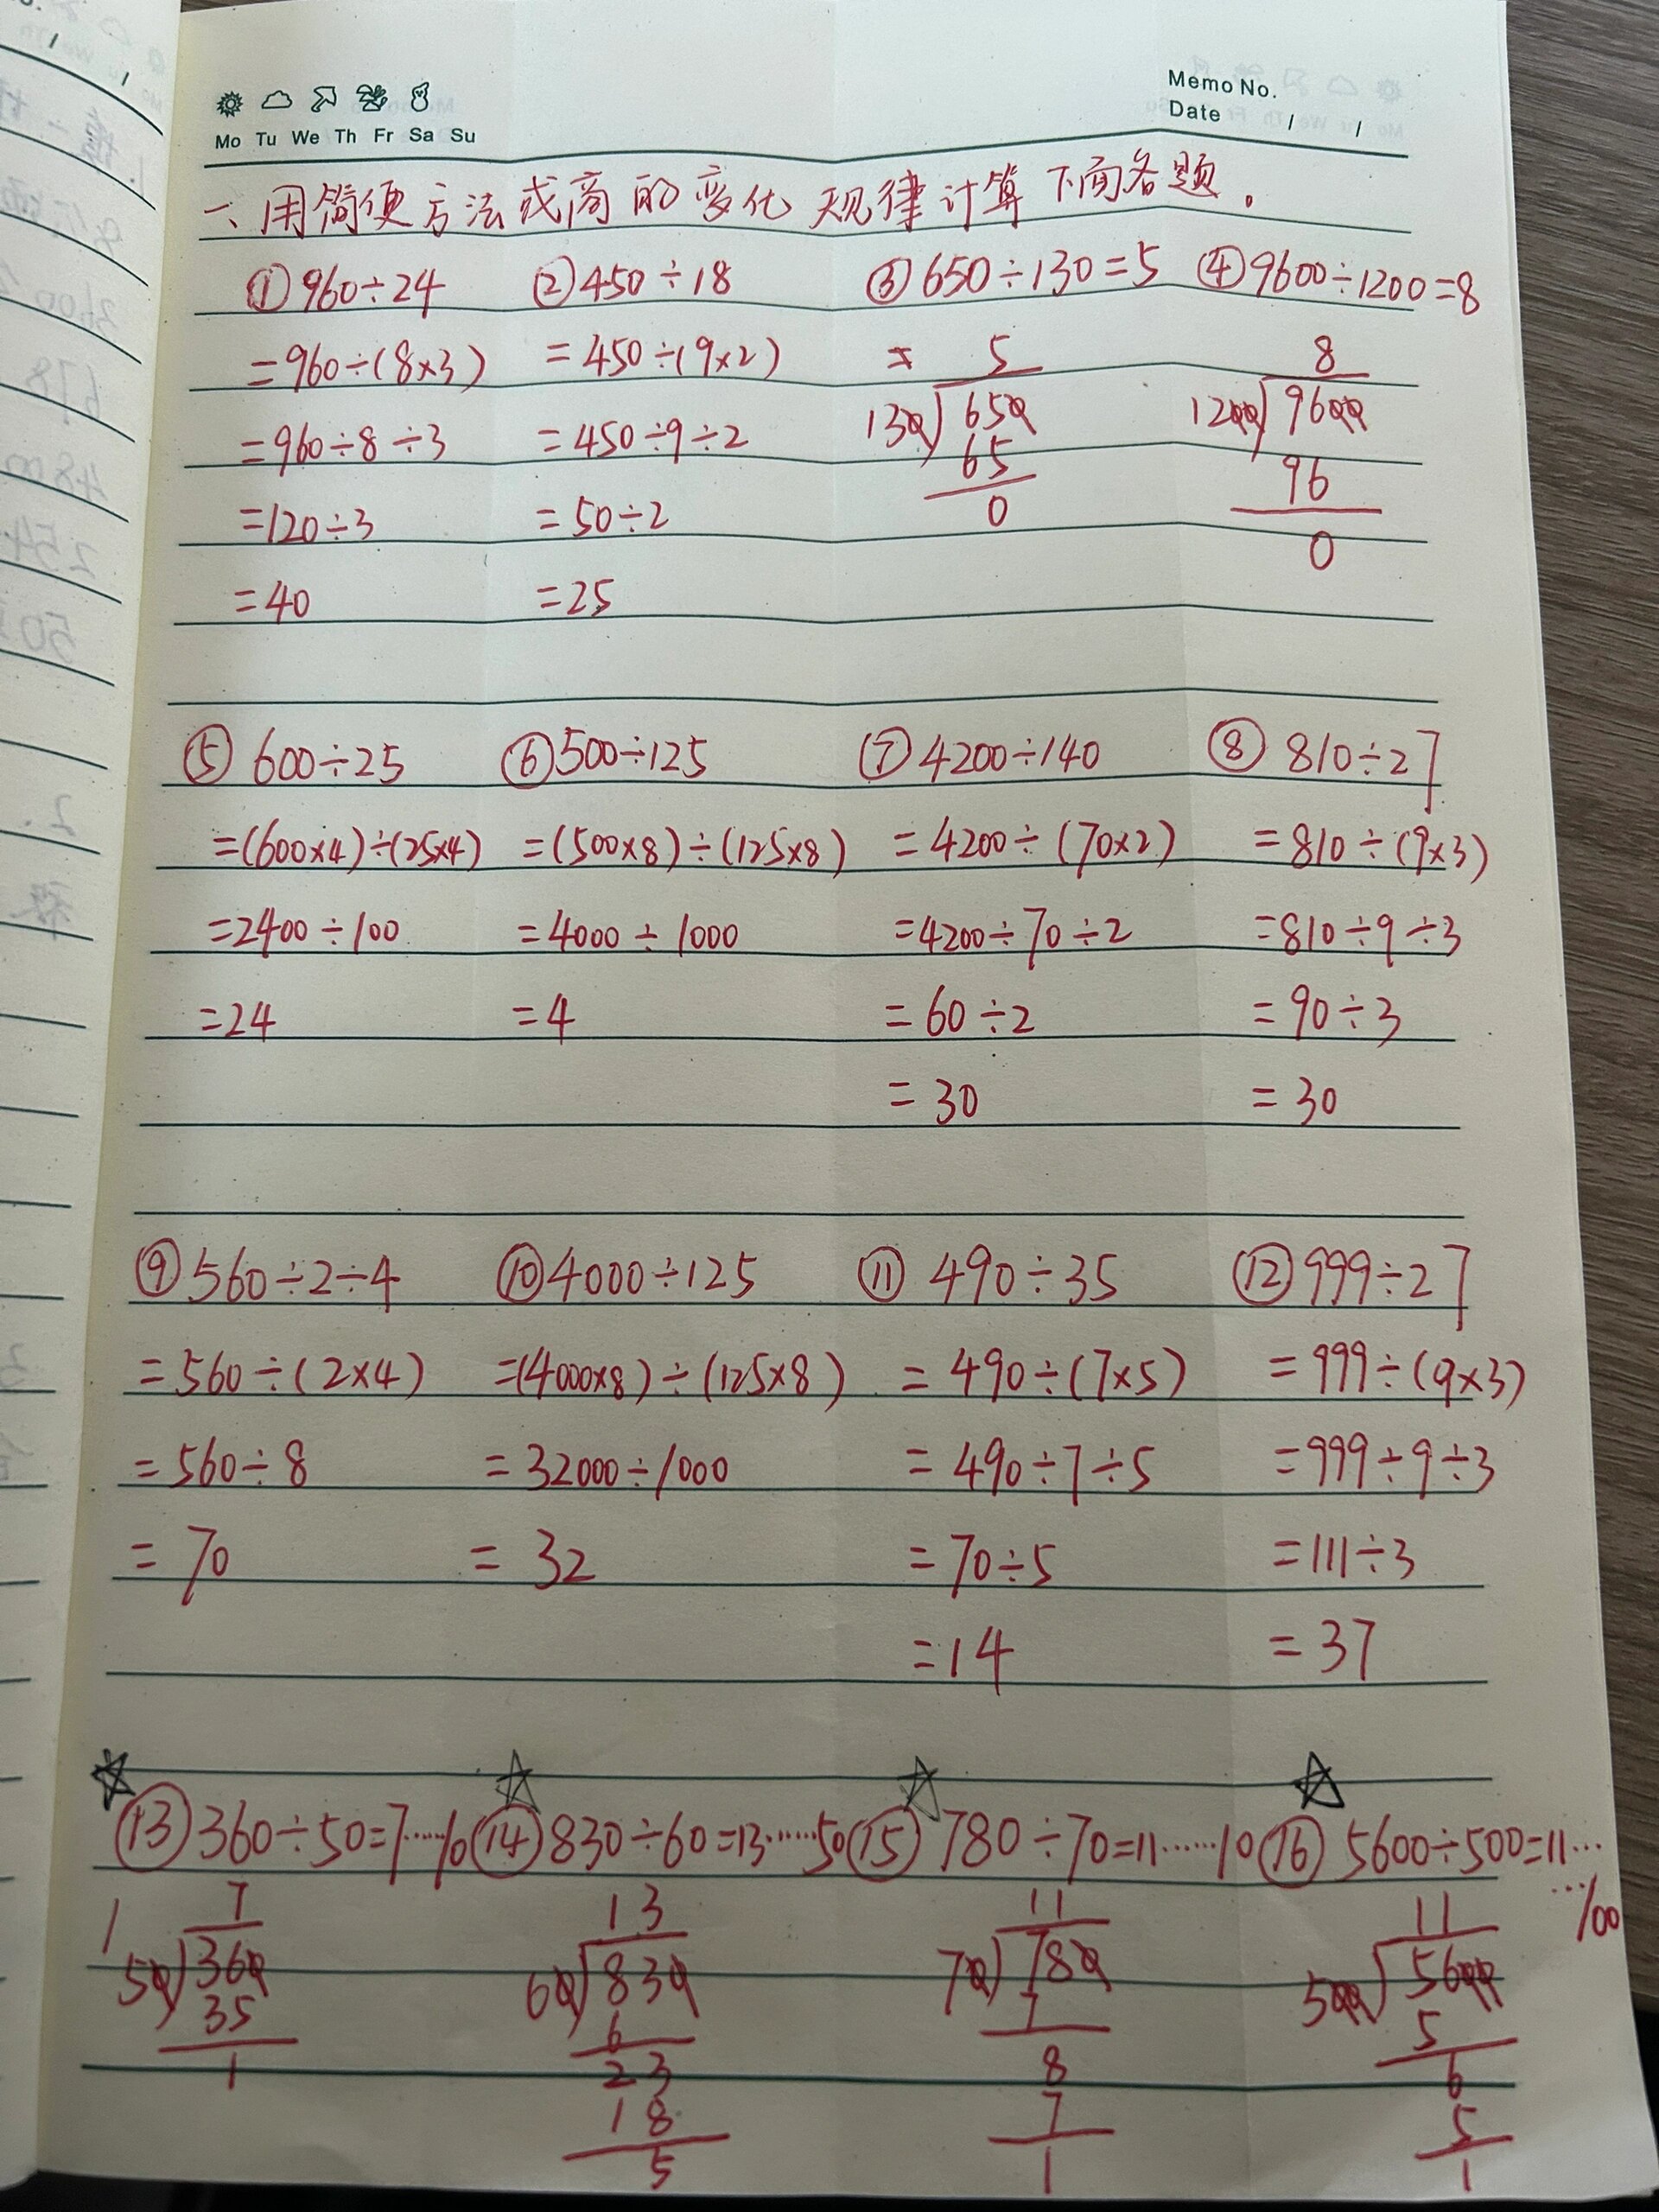 Memo No.
Date / /
Mo Tu We Th Fr Sa Su
一、用简便方法或商的变化规律计算下面各题。
①960÷24 ②450÷18 ③650÷130=5 ④9600÷1200=8
=960÷(8×3) =450÷(9×2) = 5 8
=960÷8÷3 =450÷9÷2 130 650 1200 9600
65 96
=120÷3 =50÷2 0 0
=40 =25
⑤600÷25 ⑥500÷125 ⑦4200÷140 ⑧810÷27
=(600×4)÷(25×4) =(500×8)÷(125×8) =4200÷(70×2) =810÷(9×3)
=2400÷100 =4000÷1000 =4200÷70÷2 =810÷9÷3
=24 =4 =60÷2 =90÷3
=30 =30
⑨560÷2÷4 ⑩4000÷125 ⑪490÷35 ⑫999÷27
=560÷(2×4) =(4000×8)÷(125×8) =490÷(7×5) =999÷(9×3)
=560÷8 =32000÷1000 =490÷7÷5 =999÷9÷3
=70 =32 =70÷5 =111÷3
=14 =37
⑬360÷50=7……10 ⑭830÷60=13……50 ⑮780÷70=11……10 ⑯5600÷500=11…
…100
7 13 11 11
50 360 60 830 70 780 500 5600
35 6 7 5
1 23 8 6
18 7 5
5 1 1